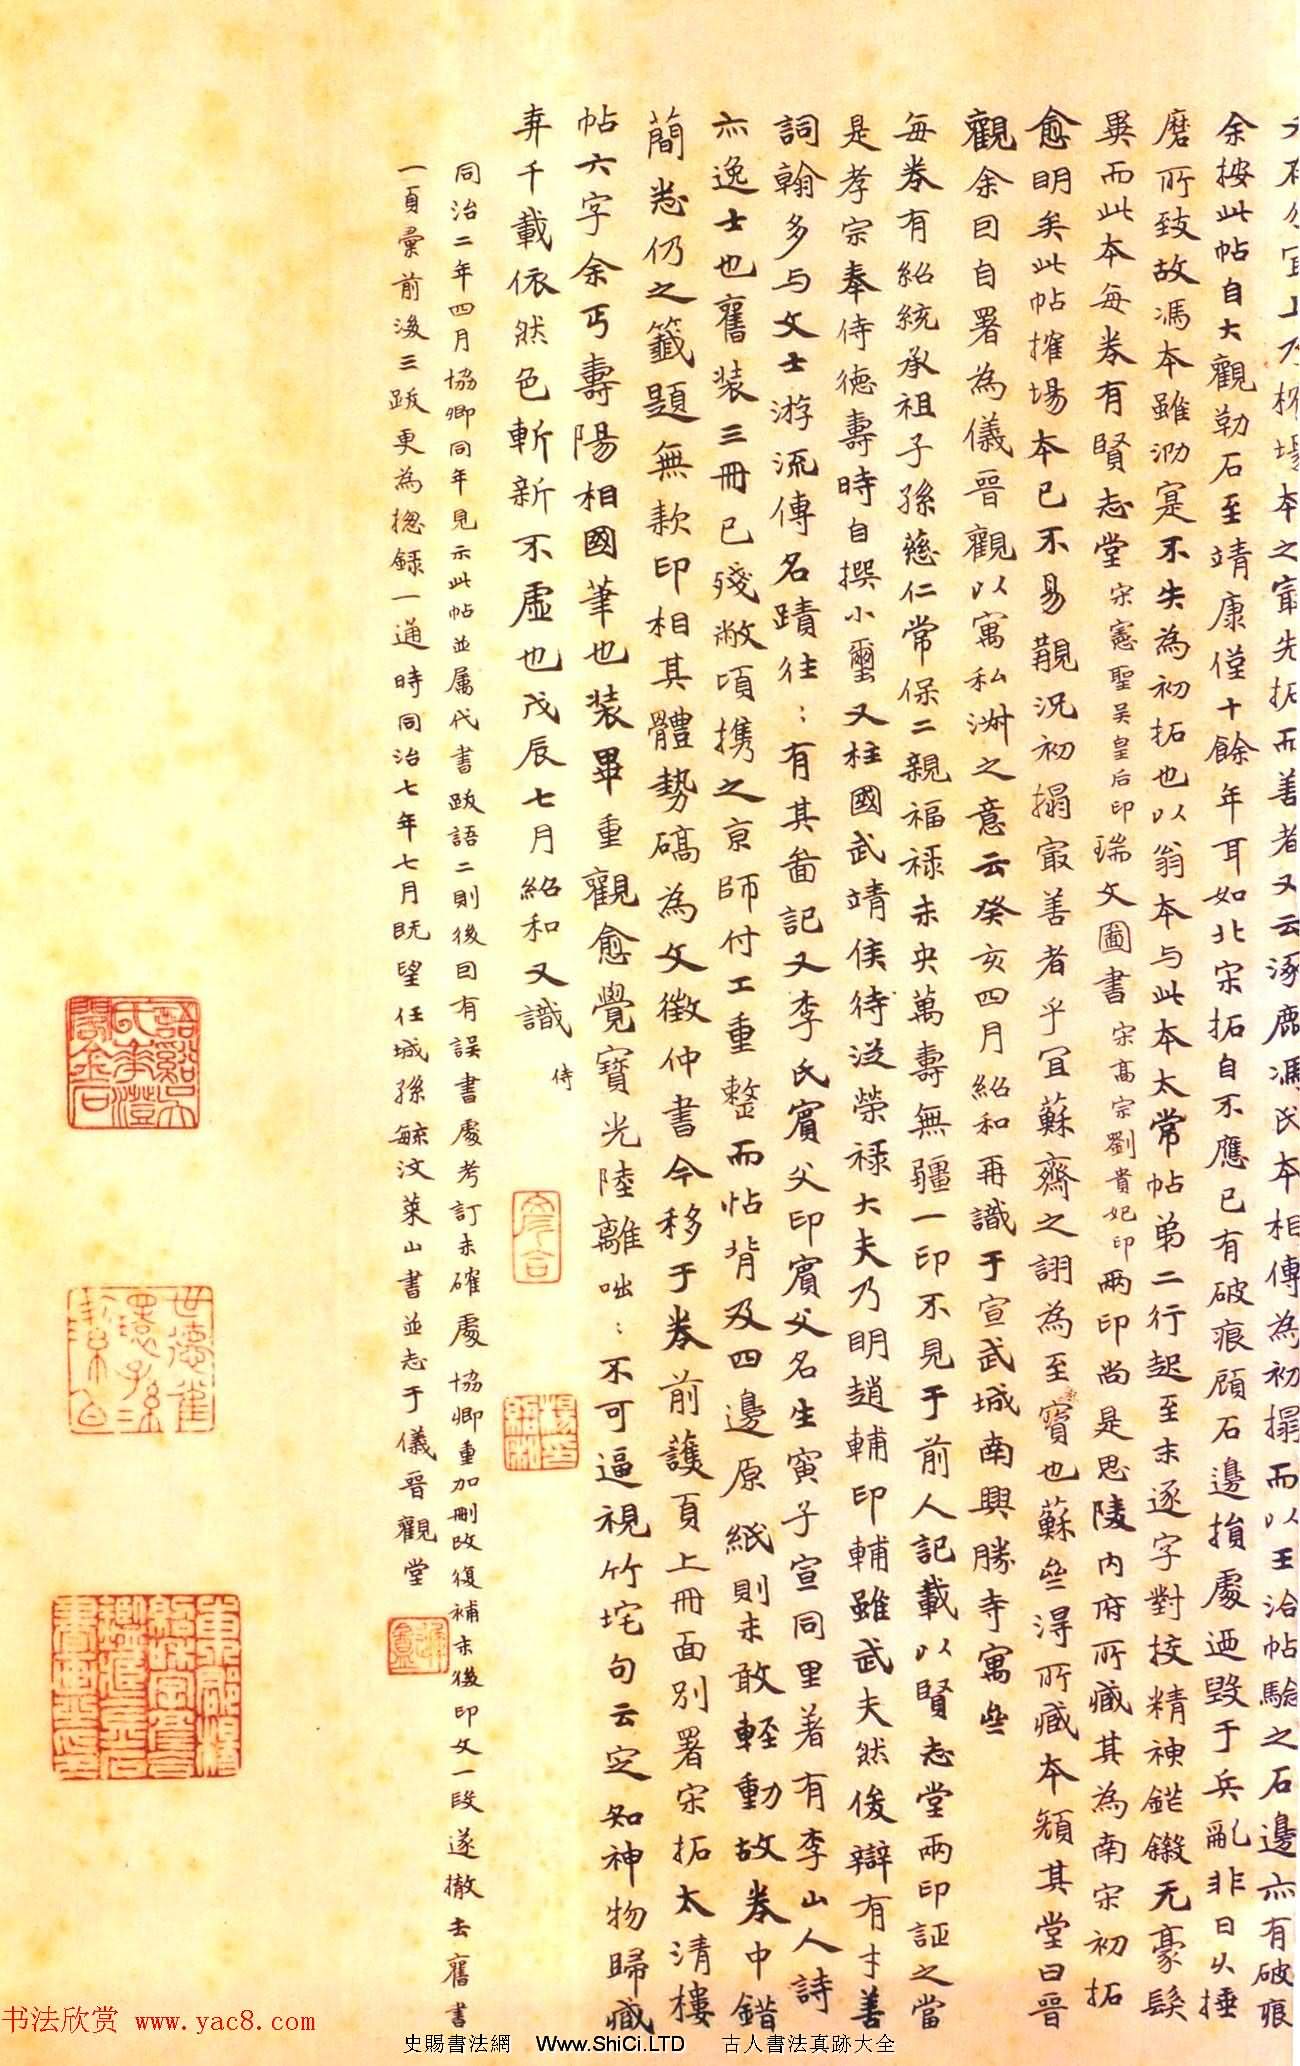 之宷先拓而善者又云涿鹿馮氏本相傳為初搨而以王洽帖驗之石邊亦有破痕
余按此帖自大觀勒石至靖康僅十餘年耳如北宋拓自不應已有破痕顧石邊損處迺毀于兵亂非日久捶
磨所致故馮本雖泐寔不失為初拓也以翁本与此本太常帖弟二行起至末逐字對挍精神鋩鎩无豪髮
異而此本每券有賢志堂宋憲聖吴皇后印瑞文圖書宋高宗劉貴妃印兩印尚是思陵內府所藏其為南宋初拓
愈明矣此帖搉場本已不易覯况初搨㝡善者乎宜蘇齋之詡為至寶也蘇㘴得所藏本頟其堂曰晉
觀余因自署為儀晉觀以寓私淑之意云癸亥四月紹和再識于宣武城南興勝寺寓㘴
每券有紹統承祖子孫慈仁常保二親福祿未央萬壽無疆一印不見于前人記載以賢志堂兩印証之當
是孝宗奉侍德壽時自撰小璽又柱國武靖侯待泛榮祿大夫乃明趙輔印輔雖武夫然俊辯有才善
詞翰多与文士游流傳名蹟往〻有其啚記又李氏賓父印賓父名生寅子宣同里著有李山人詩
亦逸士也舊装三冊已殘敝頃携之京師付工重整而帖背及四邊原紙則未敢輕動故券中錯
蕳悉仍之籤題無款印相其體勢碻為文徵仲書今移于券前護頁上冊面別署宋拓太清樓
帖六字余丐壽陽相國筆也装畢重觀愈覺寶光陸離咄〻不可逼視竹垞句云定知神物歸藏
弆千載依然色斬新不虛也戊辰七月紹和又識
侍
同治二年四月協卿同年見示此帖並属代書跋語二則後因有誤書處考訂未確處協卿重加刪改復補末後印文一段遂撤去舊書
一頁彙前後三跋更為揔録一通時同治七年七月旣望任城孫毓汶萊山書並志于儀晉觀堂
彦合
楊氏
紹和
书法欣赏 www.yac8.com
史賜書法網 Www.ShiCi.LTD 古人書法真跡大全